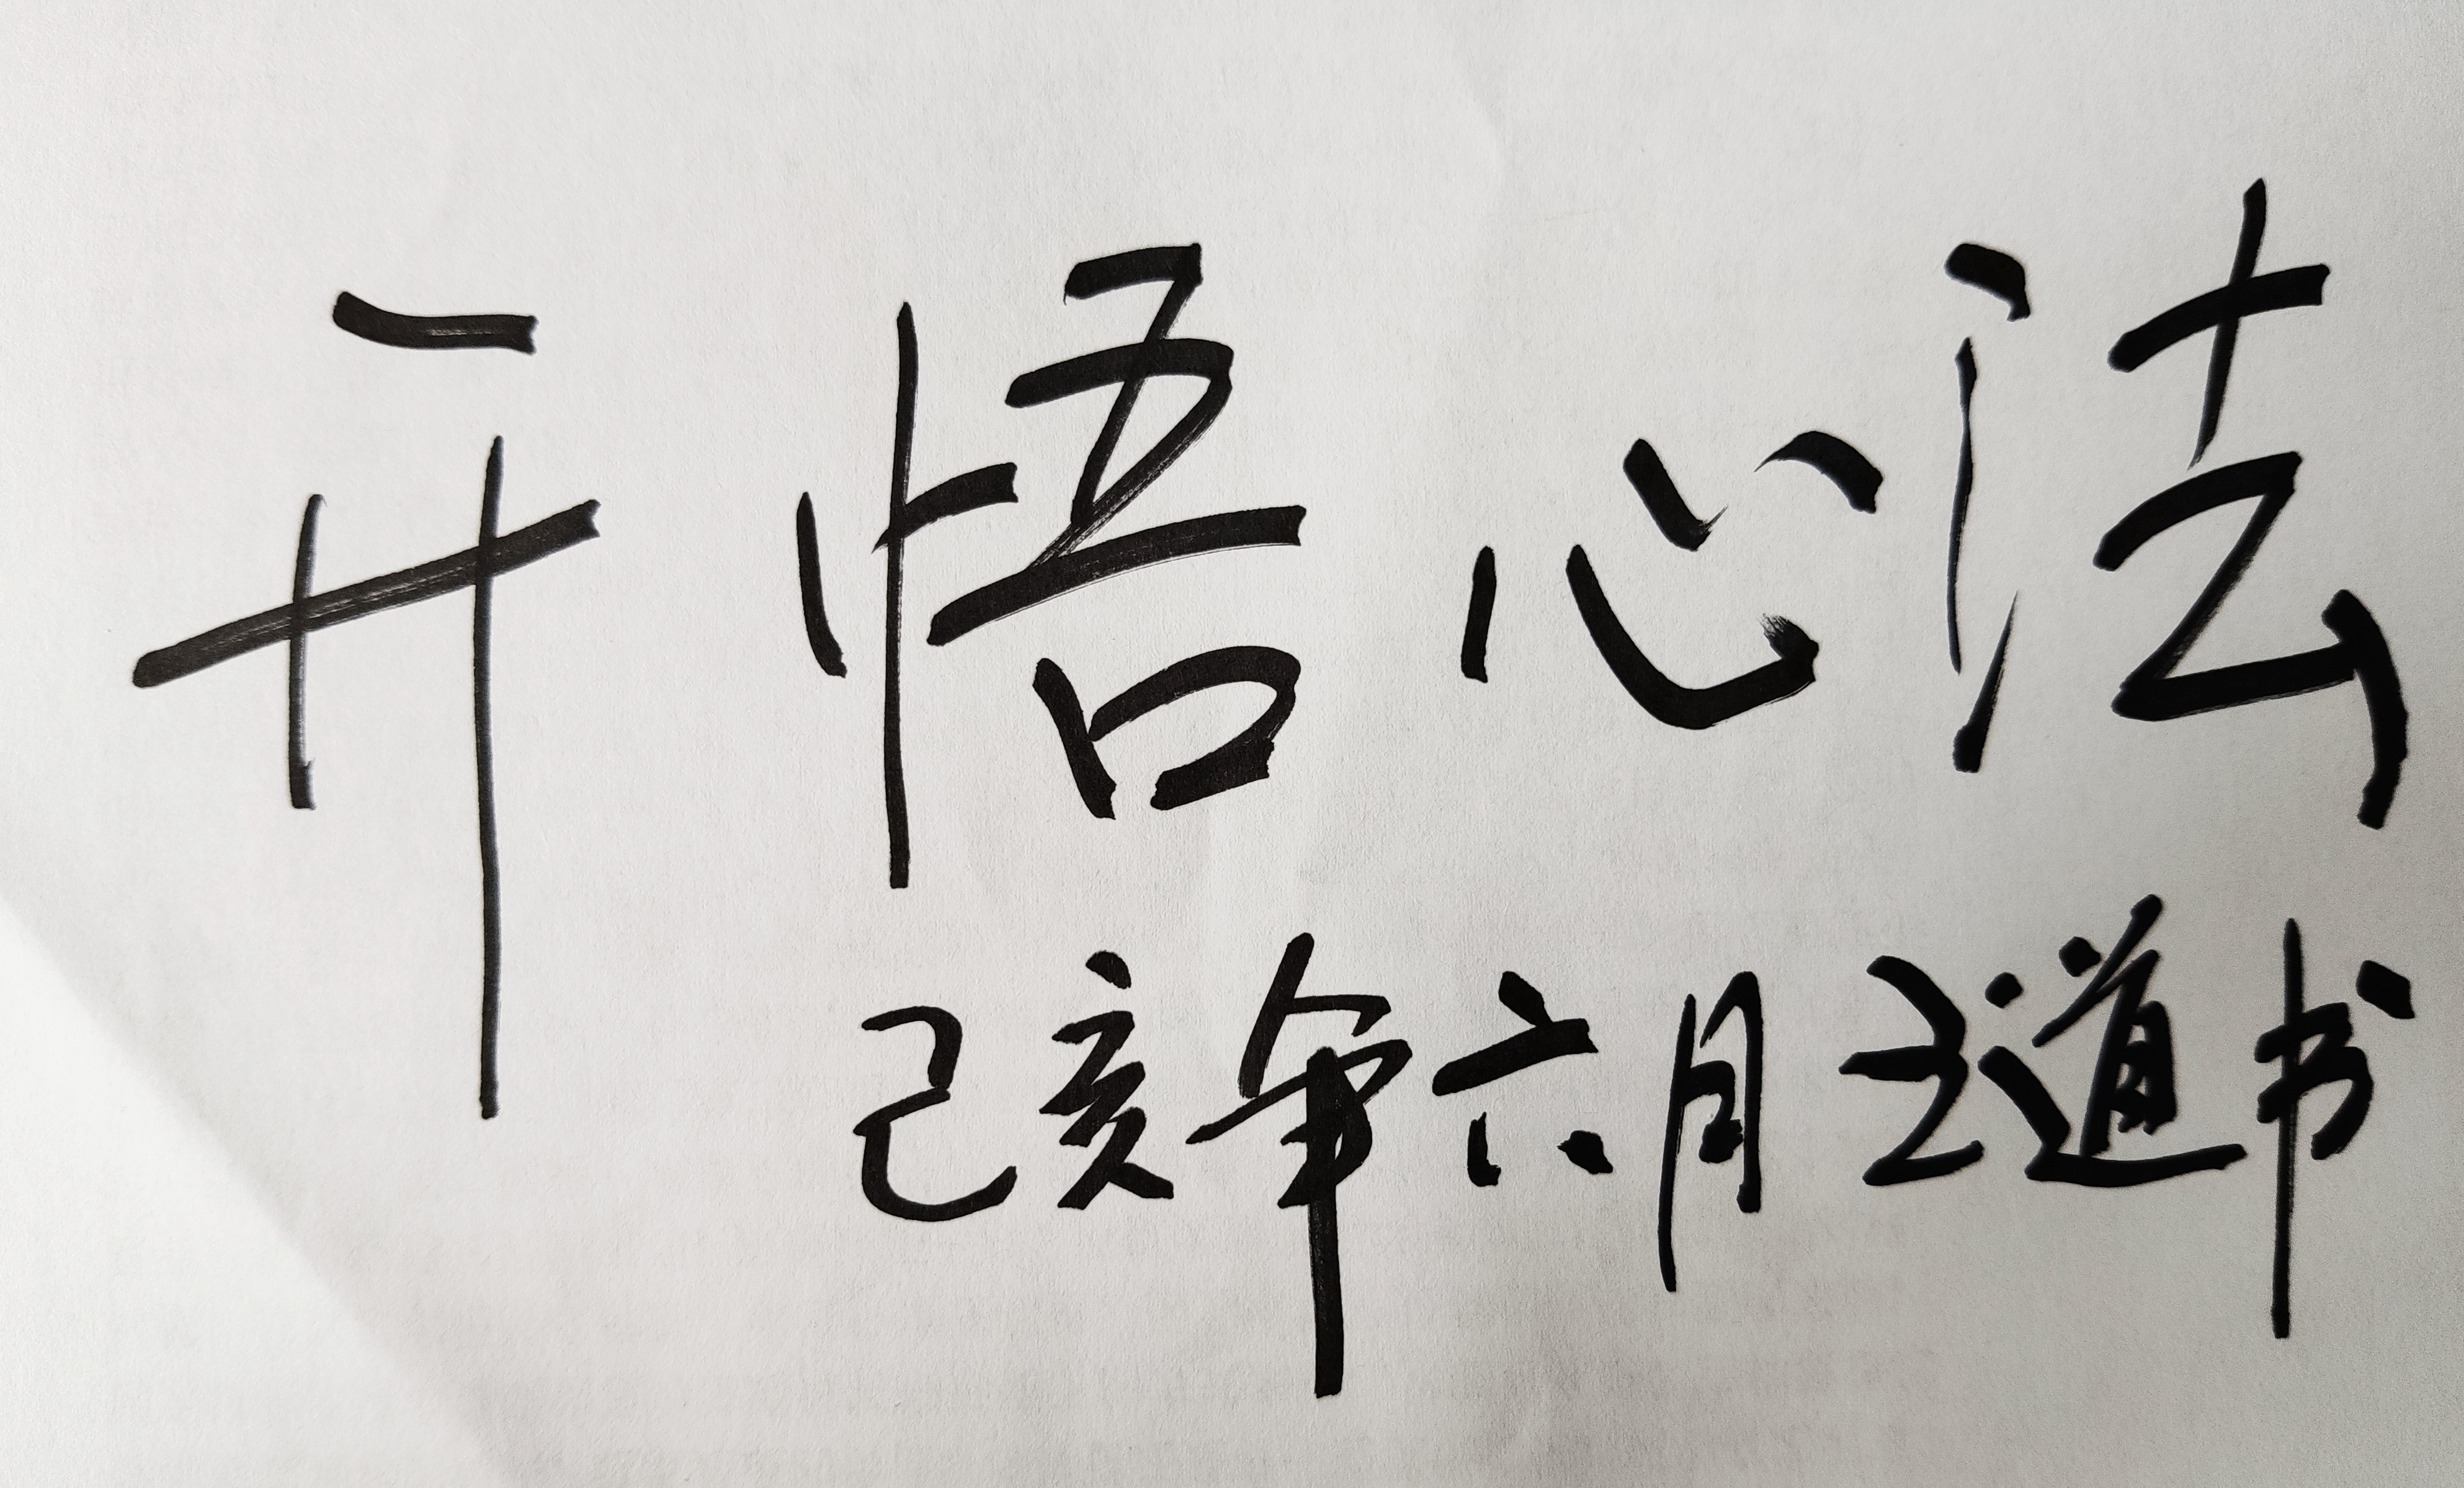 开悟心法
己亥年六月王道书